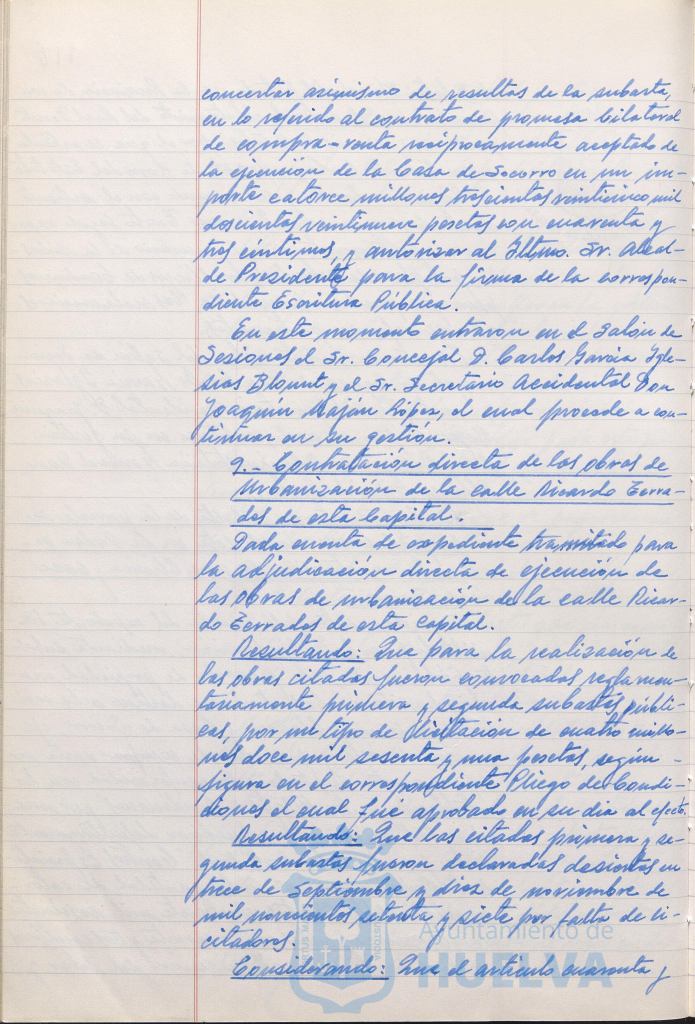 concertar asimismo de resultas de la subasta,
en lo referido al contrato de promesa bilateral
de compra-venta recíprocamente aceptado de
la ejecución de la Casa de Socorro en un im-
porte catorce millones trescientas veinticinco mil
doscientas veintinueve pesetas con cuarenta y
tres céntimos, y autorizar al Iltmo. Sr. Alcal-
de Presidente para la firma de la correspon-
diente Escritura Pública.
En este momento entraron en el Salón de
Sesiones el Sr. Concejal D. Carlos García Ygle-
sias Blount y el Sr. Secretario Accidental Don
Joaquín López, el cual procede a con-
tinuar en su gestión.
9.- Contratación directa de las obras de
Urbanización de la calle Ricardo Terra-
des de esta Capital.
Dada cuenta de expediente tramitado para
la adjudicación directa de ejecución de
las obras de urbanización de la calle Ricar-
do Terrades de esta Capital.
Resultando: Que para la realización de
las obras citadas fueron convocadas reglamen-
tariamente primera y segunda subastas públi-
cas, por un tipo de licitación de cuatro millo-
nes doce mil sesenta y una pesetas, según
figura en el correspondiente Pliego de Condi-
ciones el cual fué aprobado en su dia al efecto.
Resultando: Que las citadas primera y se-
gunda subastas fueron declaradas desiertas en
trece de Septiembre y diez de noviembre de
mil novecientos setenta y siete por falta de li-
citadores.
Ayuntamiento de
HUELVA
Considerando: Que el artículo cuarenta y